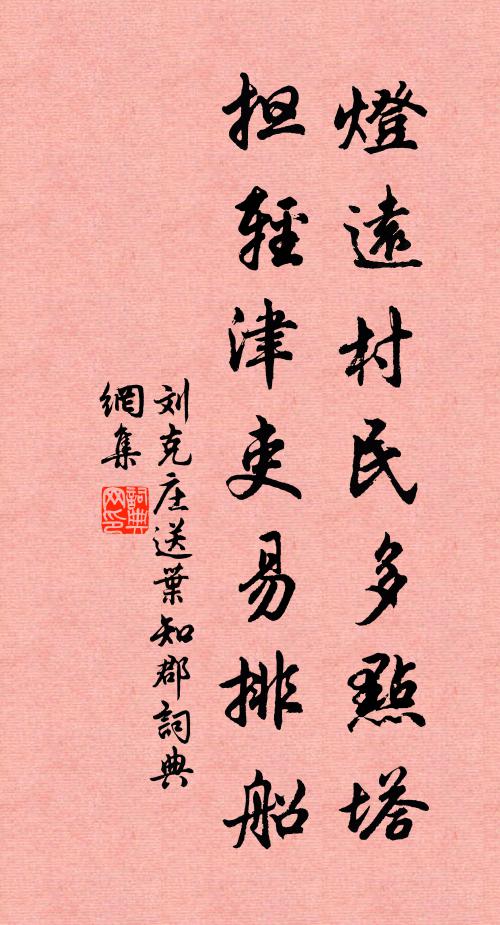 燈遠村民多點塔
担輕津吏易排船
刘克庄送葉知郡詞典
網集
詞典
网印